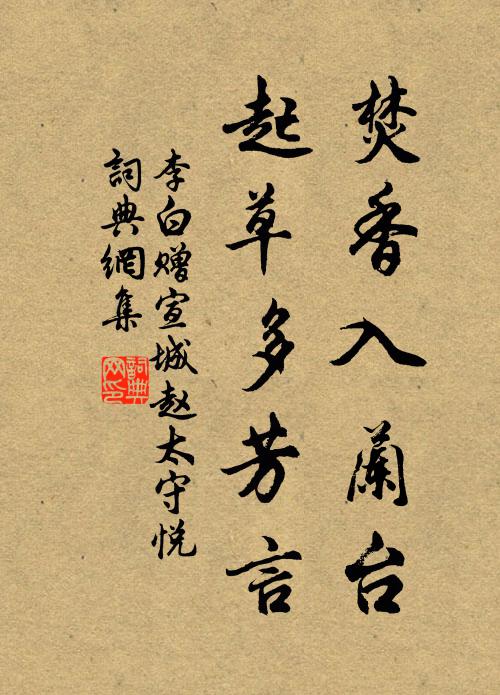 焚香入蘭台
起草多芳言
李白赠宣城赵太守悦
詞典網集
詞典
网印